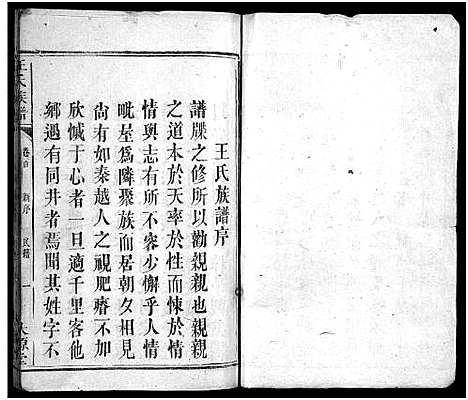 王氏族譜序
譜牒之修所以勸親親也親親
之道本於天率於性而悚於情
情與志有所不容少懈乎人情
毗屋為隣聚族而居朝夕相見
尚有如秦越人之視肥瘠不加
欣慽于心者一旦適千里客他
鄉遇有同井者焉聞其姓字不
王氏族譜
卷首
新序
民籍
一
太原堂